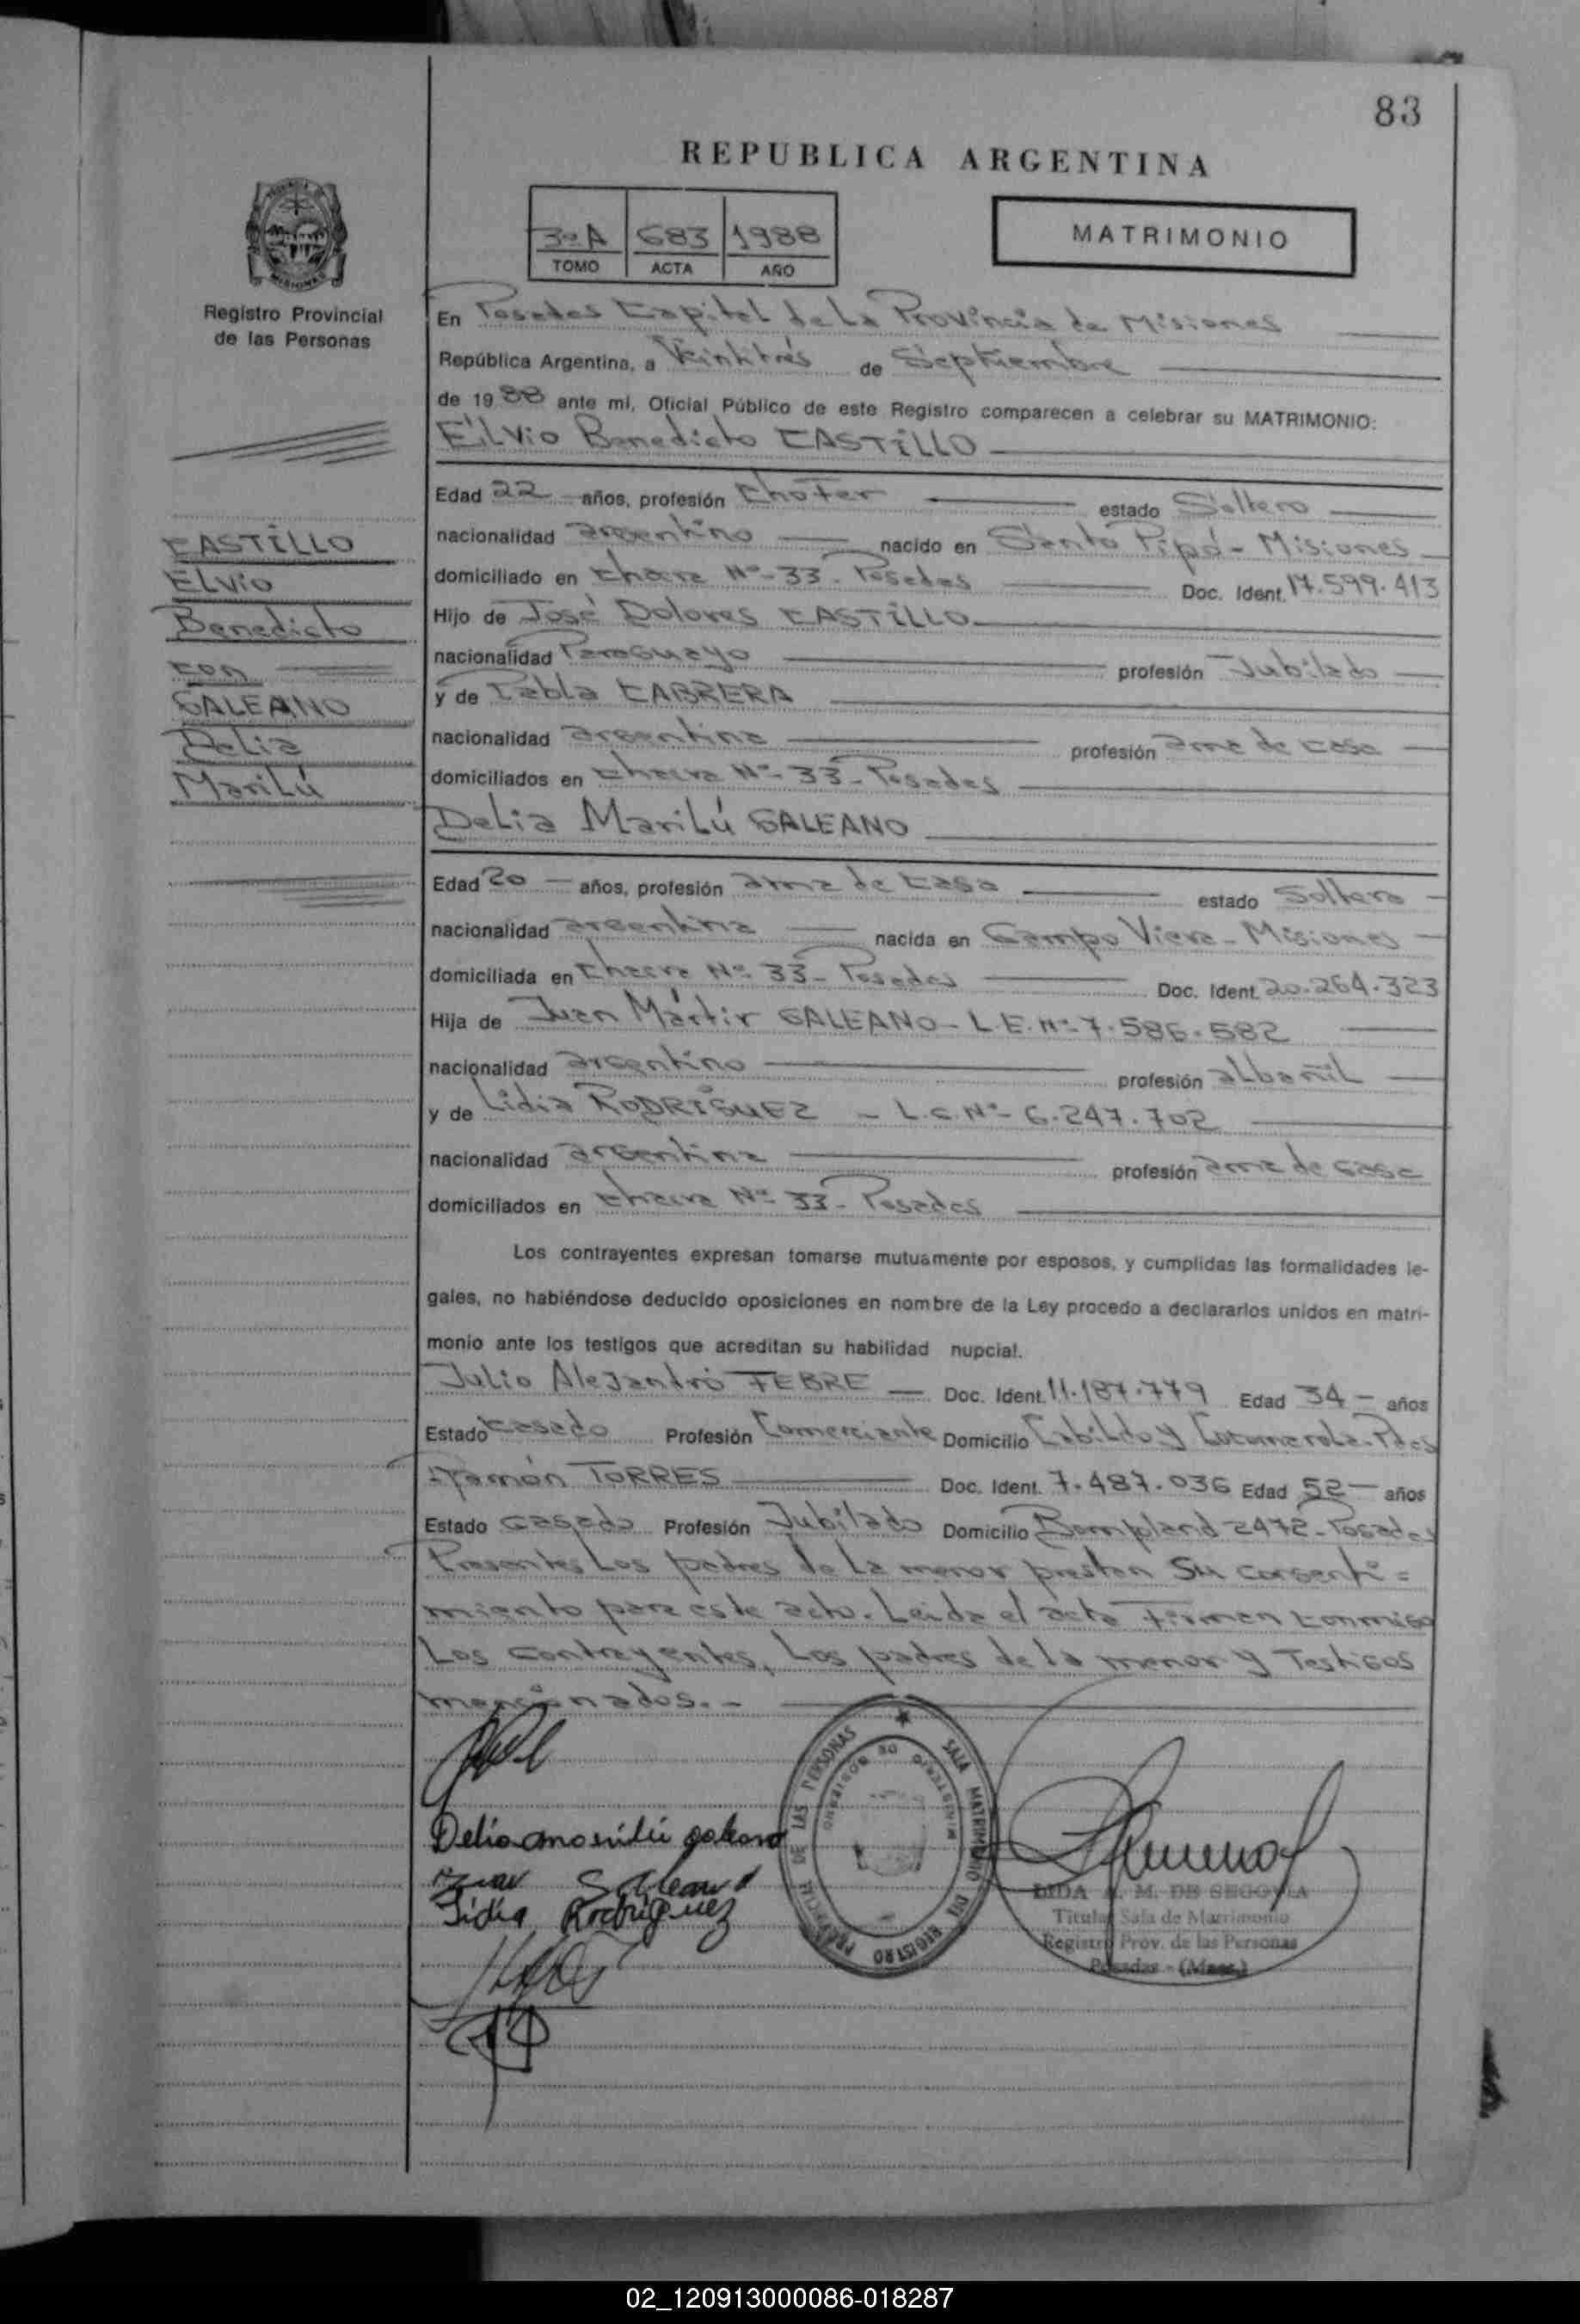 83
REPUBLICA ARGENTINA
3º A 683 1988
TOMO ACTA AÑO
MATRIMONIO
Registro Provincial
de las Personas
CASTILLO
ELVio
Benedicto
con
GALEANO
Delia
Marilú
En Posadas Capital de La Provincia de Misiones
República Argentina, a Veintitrés de Septiembre
de 1988 ante mí, Oficial Público de este Registro comparecen a celebrar su MATRIMONIO:
ElVio Benedicto CASTILLO
Edad 22 años, profesión Chofer estado Soltero
nacionalidad argentino nacido en Santo Pipó - Misiones
domiciliado en Chacra Nº 33 - Posadas Doc. Ident. 17.599.413
Hijo de José Dolores CASTILLO
nacionalidad Paraguayo profesión Jubilado
y de Pabla CABRERA
nacionalidad argentina profesión ama de casa
domiciliados en Chacra Nº 33 - Posadas
Delia Marilú GALEANO
Edad 20 años, profesión ama de casa estado Soltera
nacionalidad argentina nacida en Campo Viera - Misiones
domiciliada en Chacra Nº 33 - Posadas Doc. Ident. 20.264.323
Hija de Juan Mártir GALEANO - L.E. Nº 7.586.582
nacionalidad argentino profesión albañil
y de Lidia RODRIGUEZ - L.C. Nº 6.247.702
nacionalidad argentina profesión ama de casa
domiciliados en Chacra Nº 33 - Posadas
Los contrayentes expresan tomarse mutuamente por esposos, y cumplidas las formalidades le-
gales, no habiéndose deducido oposiciones en nombre de la Ley procedo a declararlos unidos en matri-
monio ante los testigos que acreditan su habilidad nupcial.
Julio Alejandro FEBRE Doc. Ident. 11.187.779 Edad 34 años
Estado casado Profesión Comerciante Domicilio Cabildo y Cocomarola - Pdas
Ramón TORRES Doc. Ident. 7.487.036 Edad 52 años
Estado casado Profesión Jubilado Domicilio Bompland 2472 - Posadas
Presentes Los padres de La menor prestan Su consenti=
miento para este acto. Leida el acta Firman conmigo
Los contrayentes, Los padres de la menor y Testigos
mencionados.-
Delia marilú galeano
Juan Galeano
Lidia Rodriguez
REGISTRO PROVINCIAL DE LAS PERSONAS
SALA MATRIMONIO DEL
MINISTERIO DE GOBIERNO
LIDA M. DE SEGOVIA
Titular Sala de Matrimonio
Registro Prov. de las Personas
Posadas - (Mnes.)
02_120913000086-018287